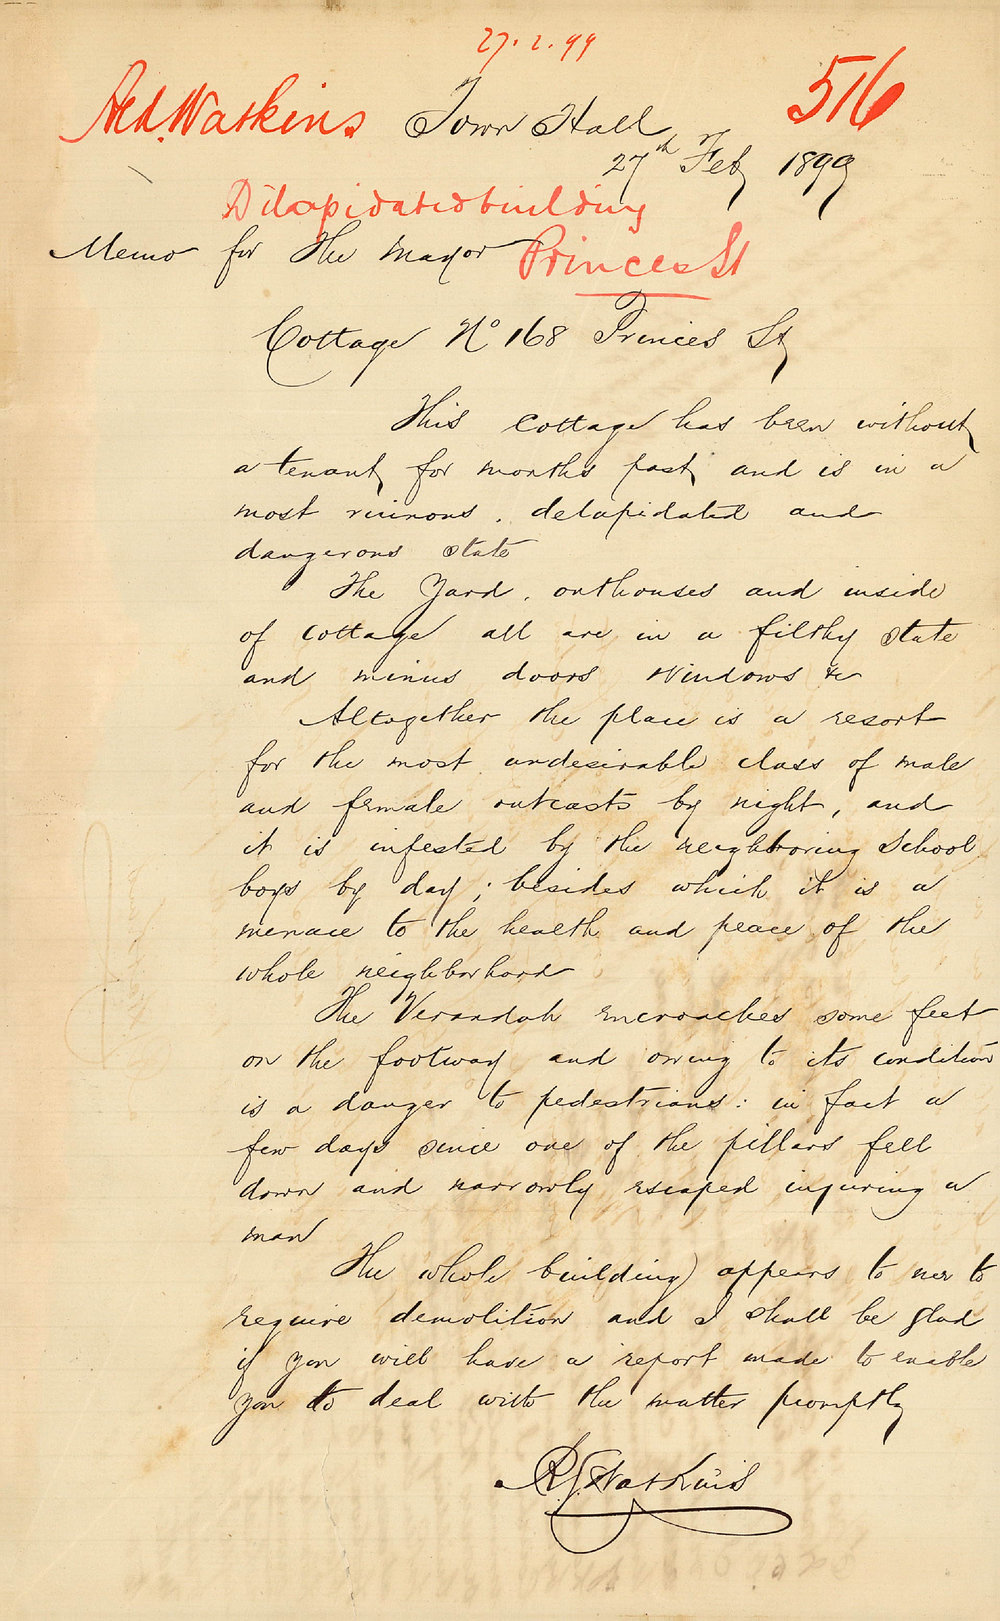 27.2.99
Ald. Watkins Town Hall 516
27th Feby 1899
Dilapidated building
Memo for the Mayor Princes St
Cottage No 168 Princes St
This cottage has been without
a tenant for months past and is in a
most ruinous, delapidated and
dangerous state
The Yard, outhouses and inside
of cottage all are in a filthy state
and minus doors windows &c
Altogether the place is a resort
for the most undesirable class of male
and female outcasts by night, and
it is infested by the neighboring School
boys by day; besides which it is a
menace to the health and peace of the
whole neighborhood
The Verandah encroaches some feet
on the footway and owing to its condition
is a danger to pedestrians: in fact a
few days since one of the pillars fell
down and narrowly escaped injuring a
man
The whole building appears to me to
require demolition and I shall be glad
if you will have a report made to enable
you to deal with the matter promptly
R J Watkins